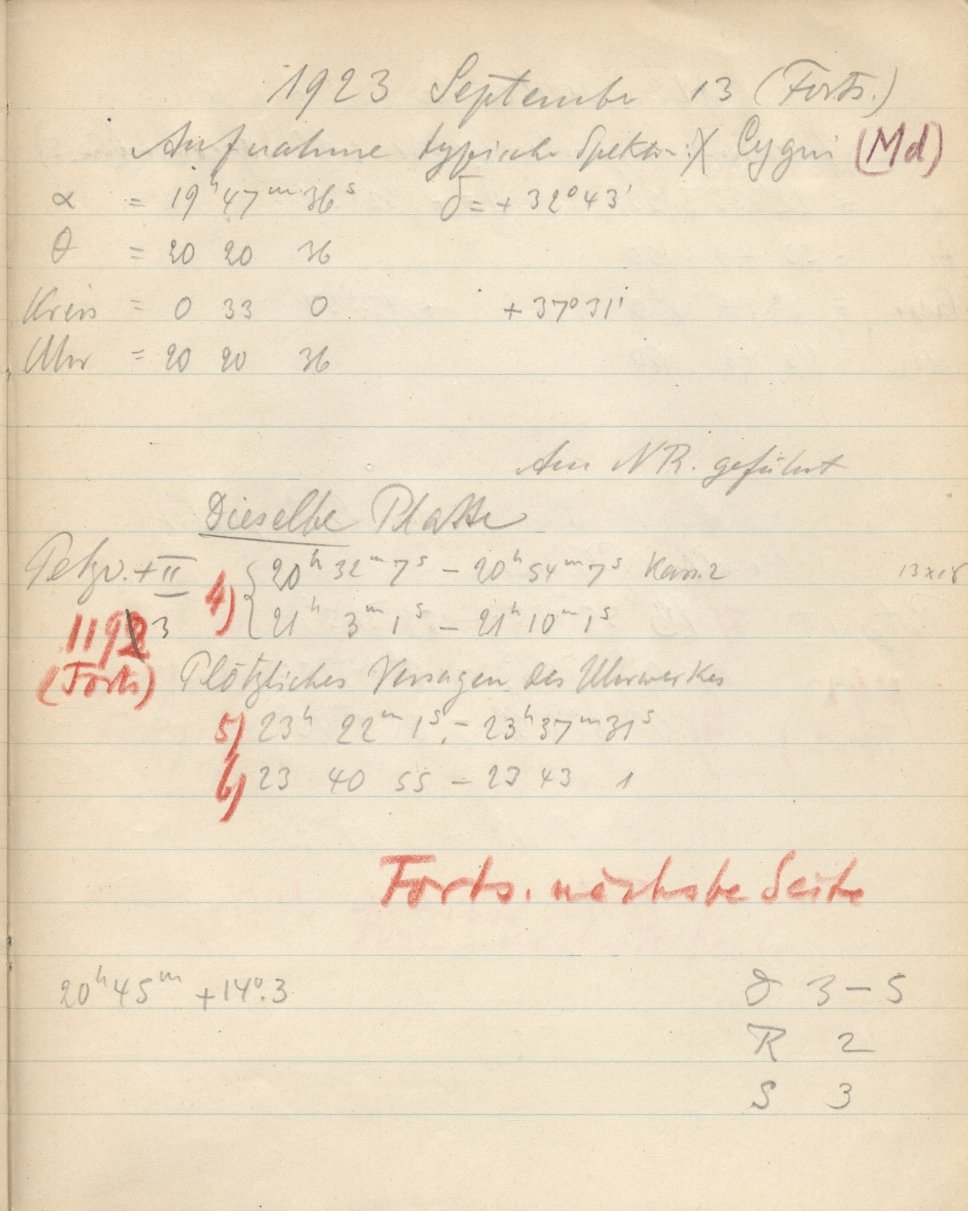 1923 September 13 (Forts.)
Aufnahme typische Spektr.: χ Cygni (Md)
α = 19h 47m 36s δ = + 32° 43'
θ = 20 20 36
Kreis = 0 33 0 + 37° 31'
Uhr = 20 20 36
Am NR. geführt
Dieselbe Platte
Petzv. + II 4) { 20h 32m 7s – 20h 54m 7s Kass. 2 13x18
1192 3 21h 3m 1s – 21h 10m 1s
(Forts) Plötzliches Versagen des Uhrwerkes
5) 23h 22m 1s – 23h 37m 31s
6) 23 40 55 – 23 43 1
Forts. nächste Seite
20h 45m + 14°.3 D 3 – 5
R 2
S 3